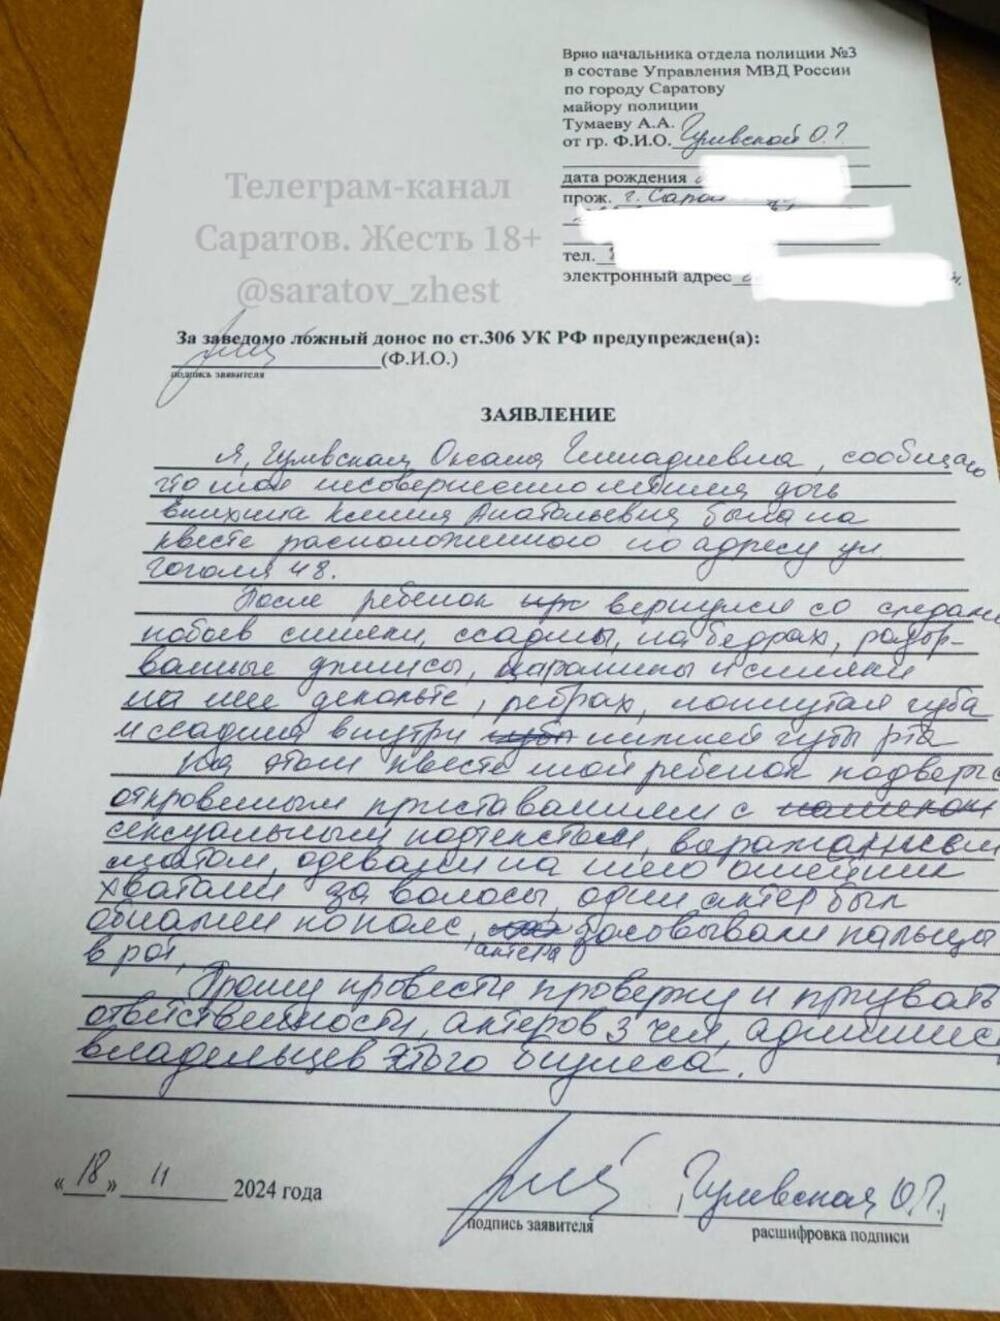 Врио начальника отдела полиции №3
в составе Управления МВД России
по городу Саратову
майору полиции
Тумаеву А.А.
от гр. Ф.И.О. О.Г.
дата рождения
прож. г.
тел.
электронный адрес
Телеграм-канал
Саратов. Жесть 18+
@saratov_zhest
За заведомо ложный донос по ст.306 УК РФ предупрежден(а):
(Ф.И.О.)
подпись заявителя
ЗАЯВЛЕНИЕ
Я, Оксана Геннадиевна, сообщаю
что моя несовершеннолетняя дочь
Ксения Анатольевна была на
квесте расположенного по адресу ул
Гоголя 48.
После ребенок вернулся со следами
побоев синяки, ссадины, на бедрах, разор-
ванные джинсы, царапины и синяки
на шее декольте, ребрах, лопнутая губа
и ссадина внутри нижней губы рта
На этом квесте мой ребенок подвергс
откровенным приставаниям с
сексуальным подтекстом, выражались
матом, одевали на шею ошейник
хватали за волосы, один актер был
обнажен по пояс, засовывали пальцы
актера
в рот,
Прошу провести проверку и призвать
ответственности, актеров 3 чел, админис
владельцев этого бизнеса.
«18» 11 2024 года
О.Г.,
подпись заявителя
расшифровка подписи